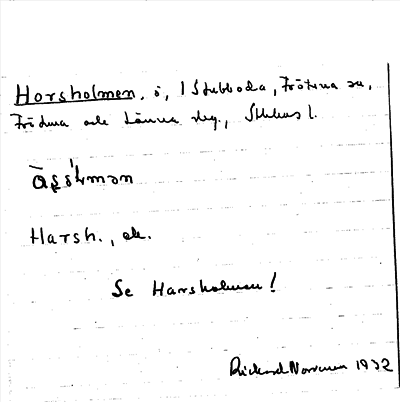 Horsholmen, ö, i Stubboda, Frötuna sn,
Frötuna och Länna skg., Sthlms l.
Harsh., ek.
Se Harsholmen!
Rickard Norrman 1932